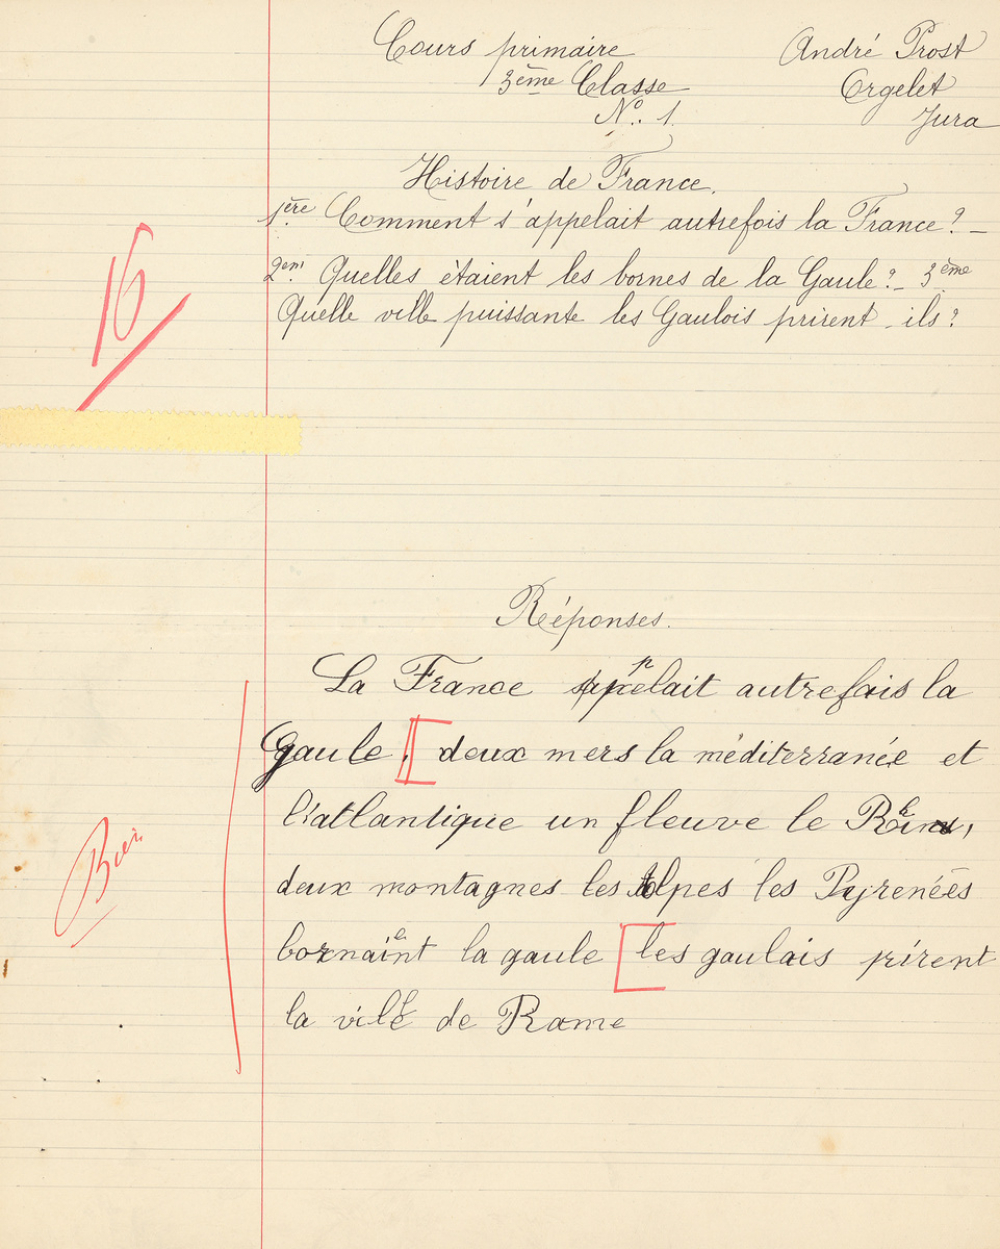 Cours primaire
André Prost
3ème Classe
Orgelet
No. 1.
Jura
Histoire de France.
1ère Comment s'appelait autrefois la France? _
2em. Quelles étaient les bornes de la Gaule? _ 3ème
Quelle ville puissante les Gaulois prirent-ils?
16
Réponses.
La France appelait autrefois la
Gaule. deux mers la méditerranée et
l'atlantique un fleuve le Rhin,
deux montagnes les Alpes les Pyrenéés
bornaient la gaule les gaulois pirent
la ville de Rome
Bien